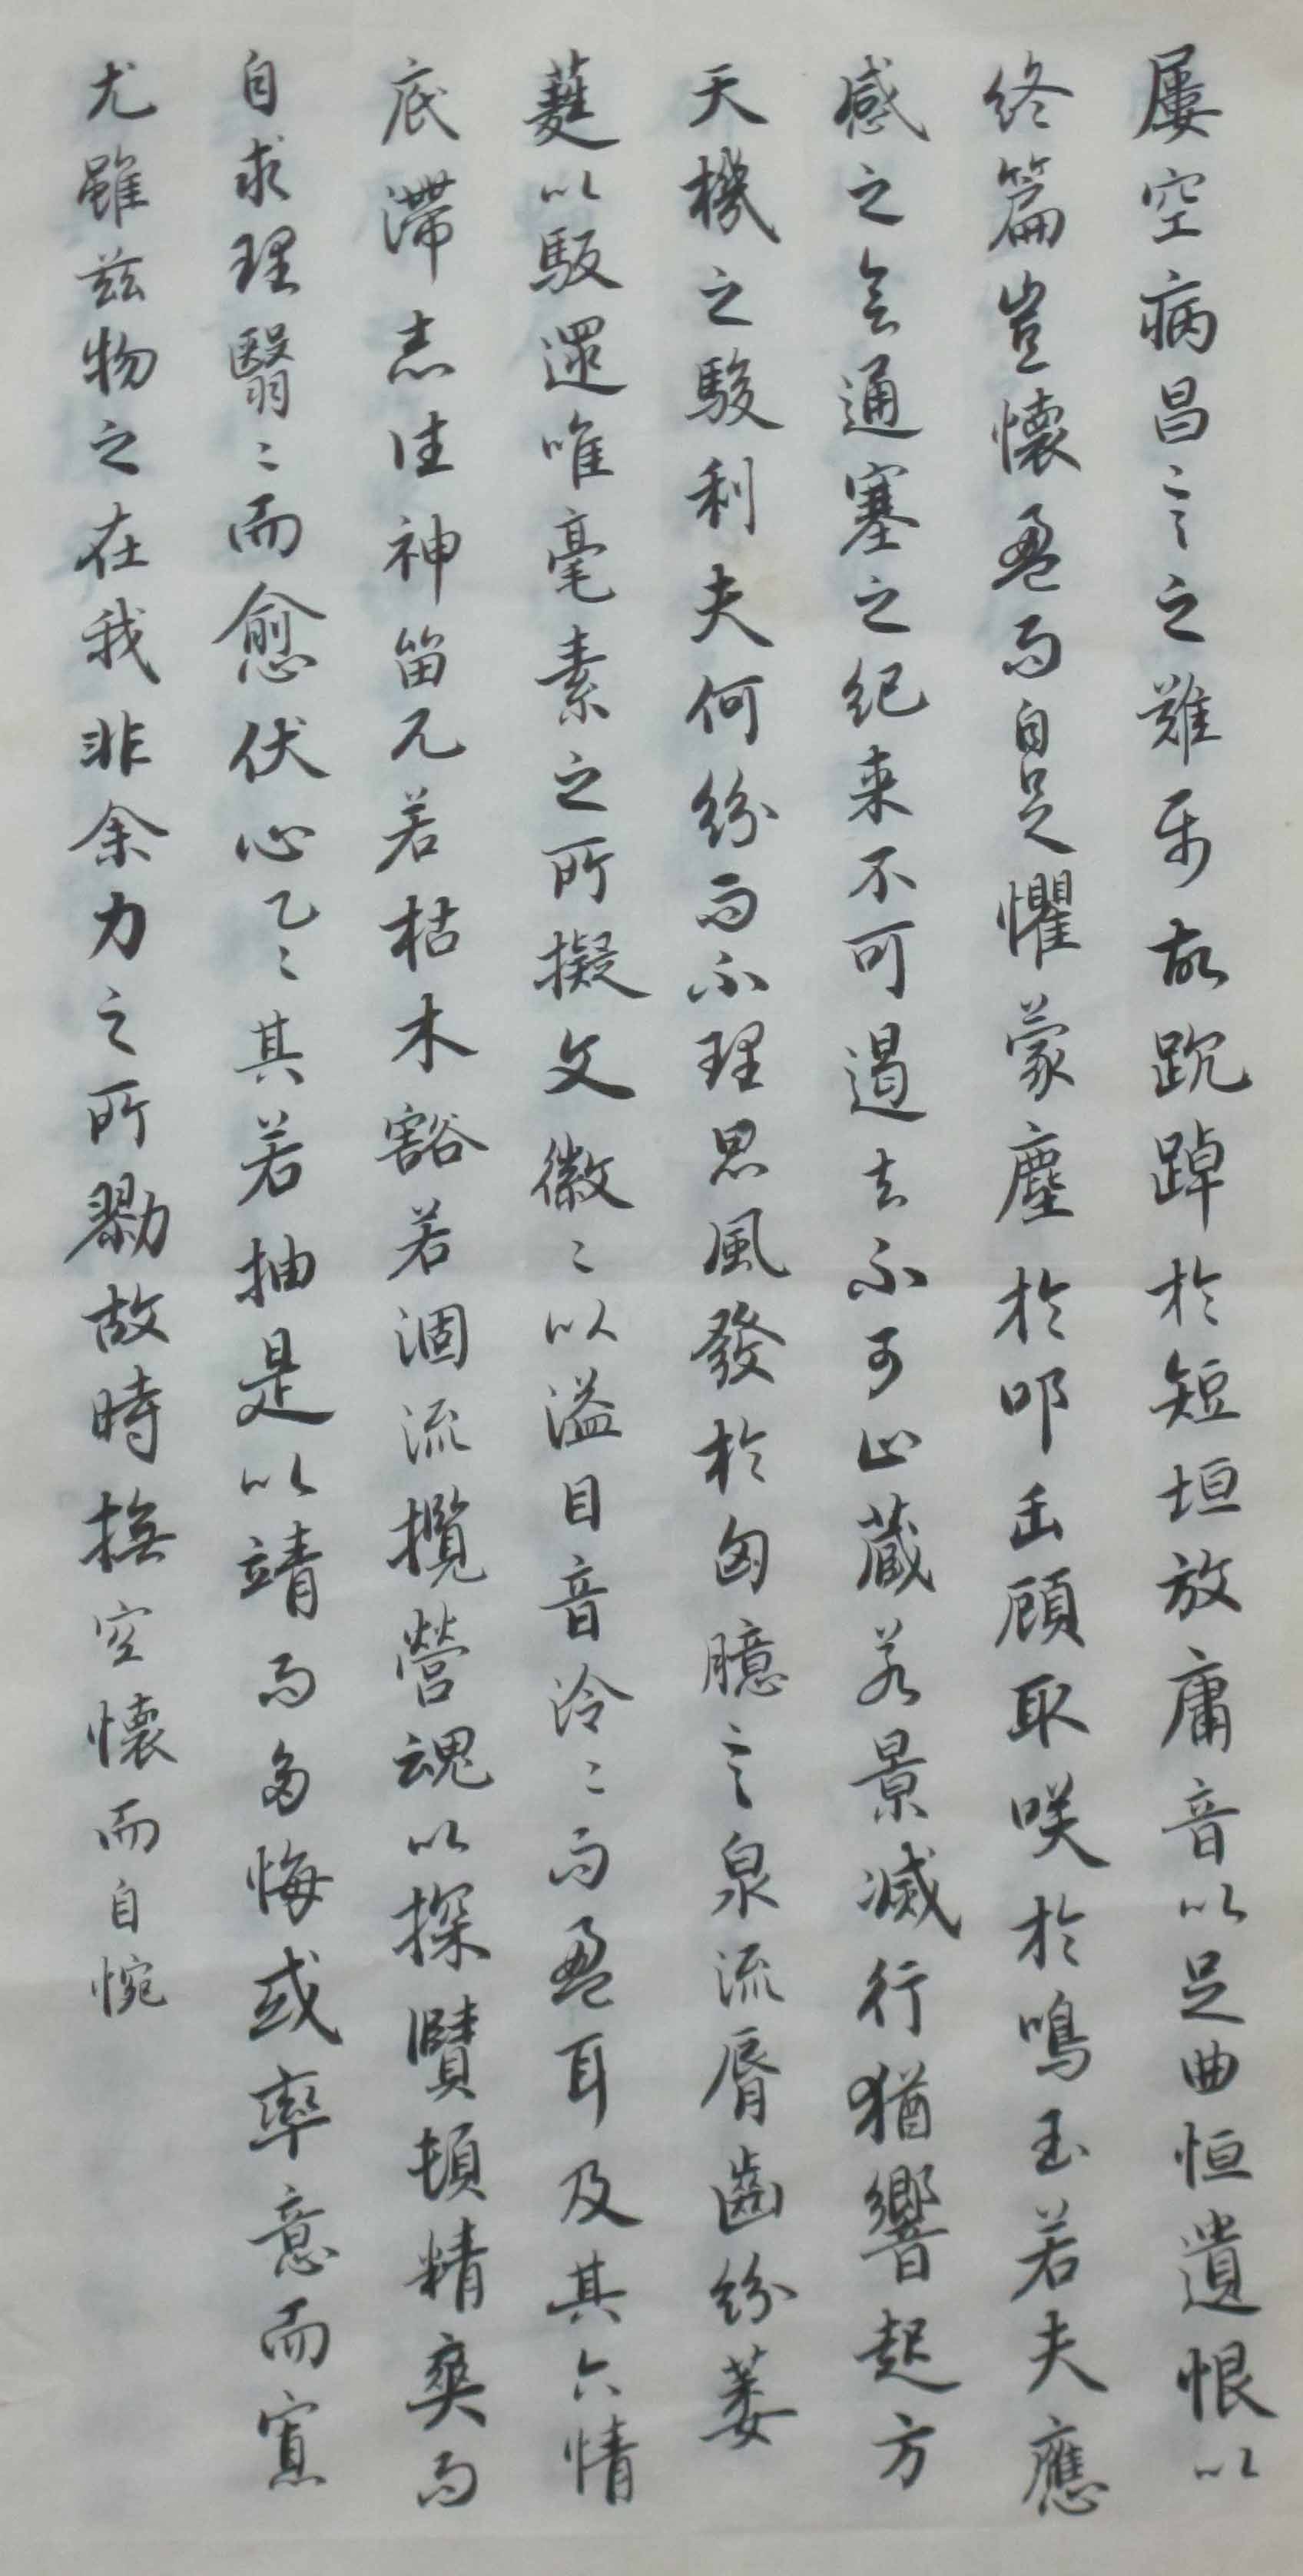 屢空病昌言之難屬故踸踔於短垣放庸音以足曲恒遺恨以
終篇豈懷盈而自足懼蒙塵於叩缶顧取咲於鳴玉若夫應
感之會通塞之紀来不可遏去不可止藏若景滅行猶響起方
天機之駿利夫何紛而不理思風發於匈臆言泉流脣齒紛葳
蕤以馺遝唯毫素之所擬文徽〻以溢目音泠〻而盈耳及其六情
底滯志往神留兀若枯木豁若涸流攬營魂以探賾頓精爽而
自求理翳〻而愈伏心乙〻其若抽是以竭情而多悔或率意而寡
尤雖兹物之在我非余力之所勠故時撫空懷而自惋